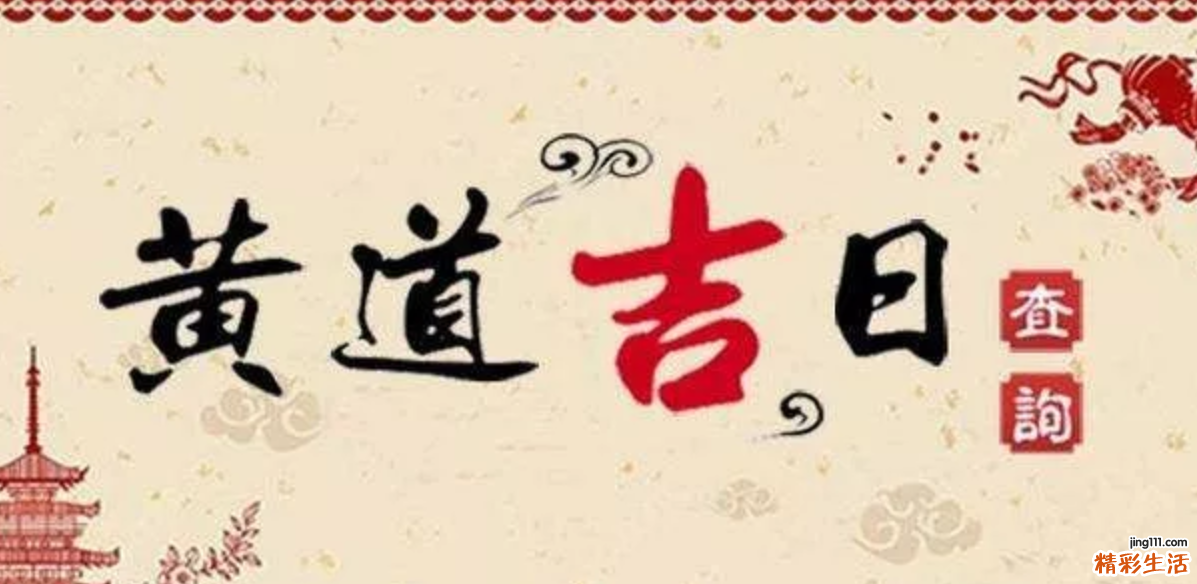 黄道吉日
查詢
jing111.com
精彩生活